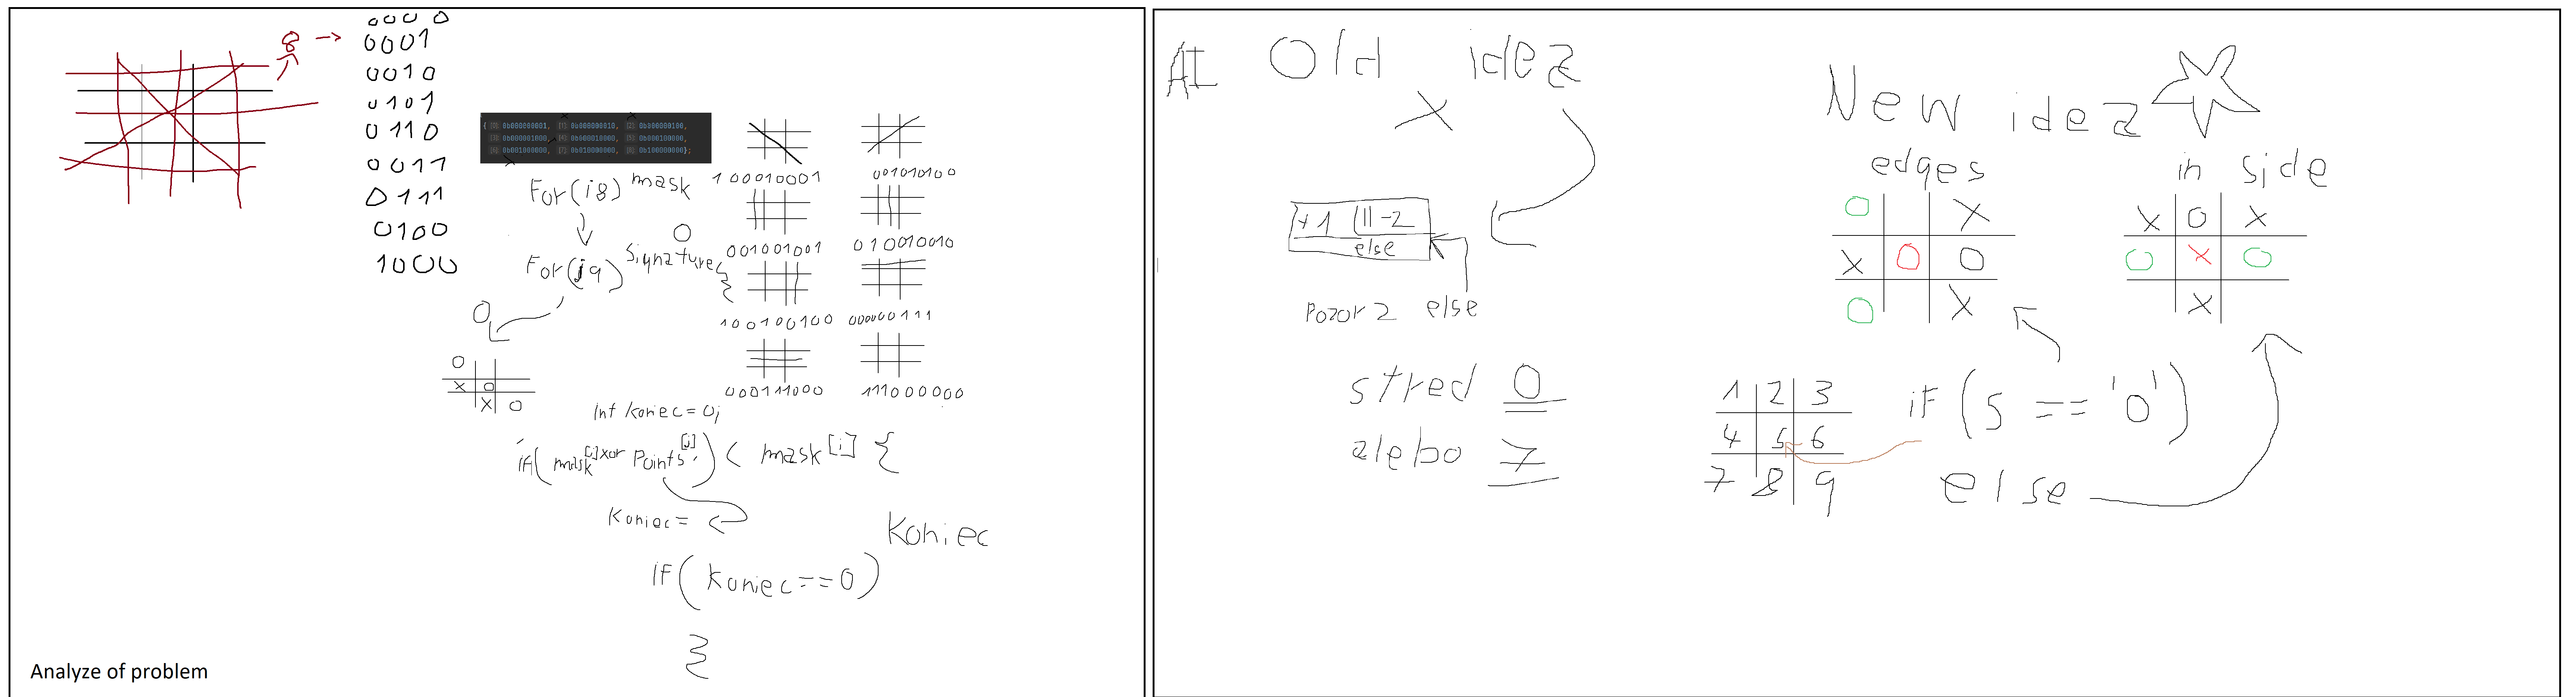 8 →
0000
0001
0010
0101
0110
0011
0111
0100
1000
{ [0] 0b000000001, [1] 0b000000010, [2] 0b000000100,
[3] 0b000001000, [4] 0b000010000, [5] 0b000100000,
[6] 0b001000000, [7] 0b010000000, [8] 0b100000000};
For(i8) mask
For(j9) Signature {
0
0
100010001 001010100
001001001 010010010
100100100 000000111
000111000 111000000
0
x 0
x 0
Int koniec=0;
if(mask[i] xor Points[j]) < mask[i] {
Koniec=
Koniec
IF(koniec==0)
}
Analyze of problem
AI Old idea
x
+1 || -2
else
Pozor 2 else
stred 0
alebo 7
New idea
edges
0 X
X 0 0
0 X
in side
X 0 X
0 X 0
X
1 2 3
4 5 6
7 8 9
if (5 == '0')
else